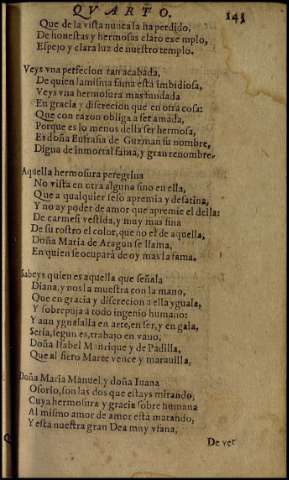 QVARTO. 141
Que de la vista nunca la ha perdido,
De honestas y hermosas claro exemplo,
Espejo y clara luz de nuestro templo.
Veys vna perfecion tan acabada,
De quien la misma fama està imbidiosa,
Veys vna hermosura mas fundada
En gracia y discrecion que en otra cosa:
Que con razon obliga a ser amada,
Porque es lo menos della ser hermosa,
Es doña Eufrasia de Guzman su nombre,
Digna de inmortal fama, y gran renombre.
Aquella hermosura peregrina
No vista en otra alguna sino en ella,
Que a qualquier seso apremia y desatina,
Y no ay poder de amor que apremie el della:
De carmesi vestida, y muy mas fina
De su rostro el color, que no el de aquella,
Doña Maria de Aragon se llama,
En quien se ocuparà de oy mas la fama.
Sabeys quien es aquella que señala
Diana, y nos la muestra con la mano,
Que en gracia y discrecion a ella yguala,
Y sobrepuja à todo ingenio humano:
Y aun ygualalla en arte, en ser, y en gala,
Seria, segun es, trabajo en vano,
Doña Isabel Manrique y de Padilla,
Que al fiero Marte vence y marauilla,
Doña Maria Manuel y doña Iuana
Osorio, son las dos que estays mirando,
Cuya hermosura y gracia sobre humana
Al mismo amor de amor està matando,
Y està nuestra gran Dea muy vfana,
De ver